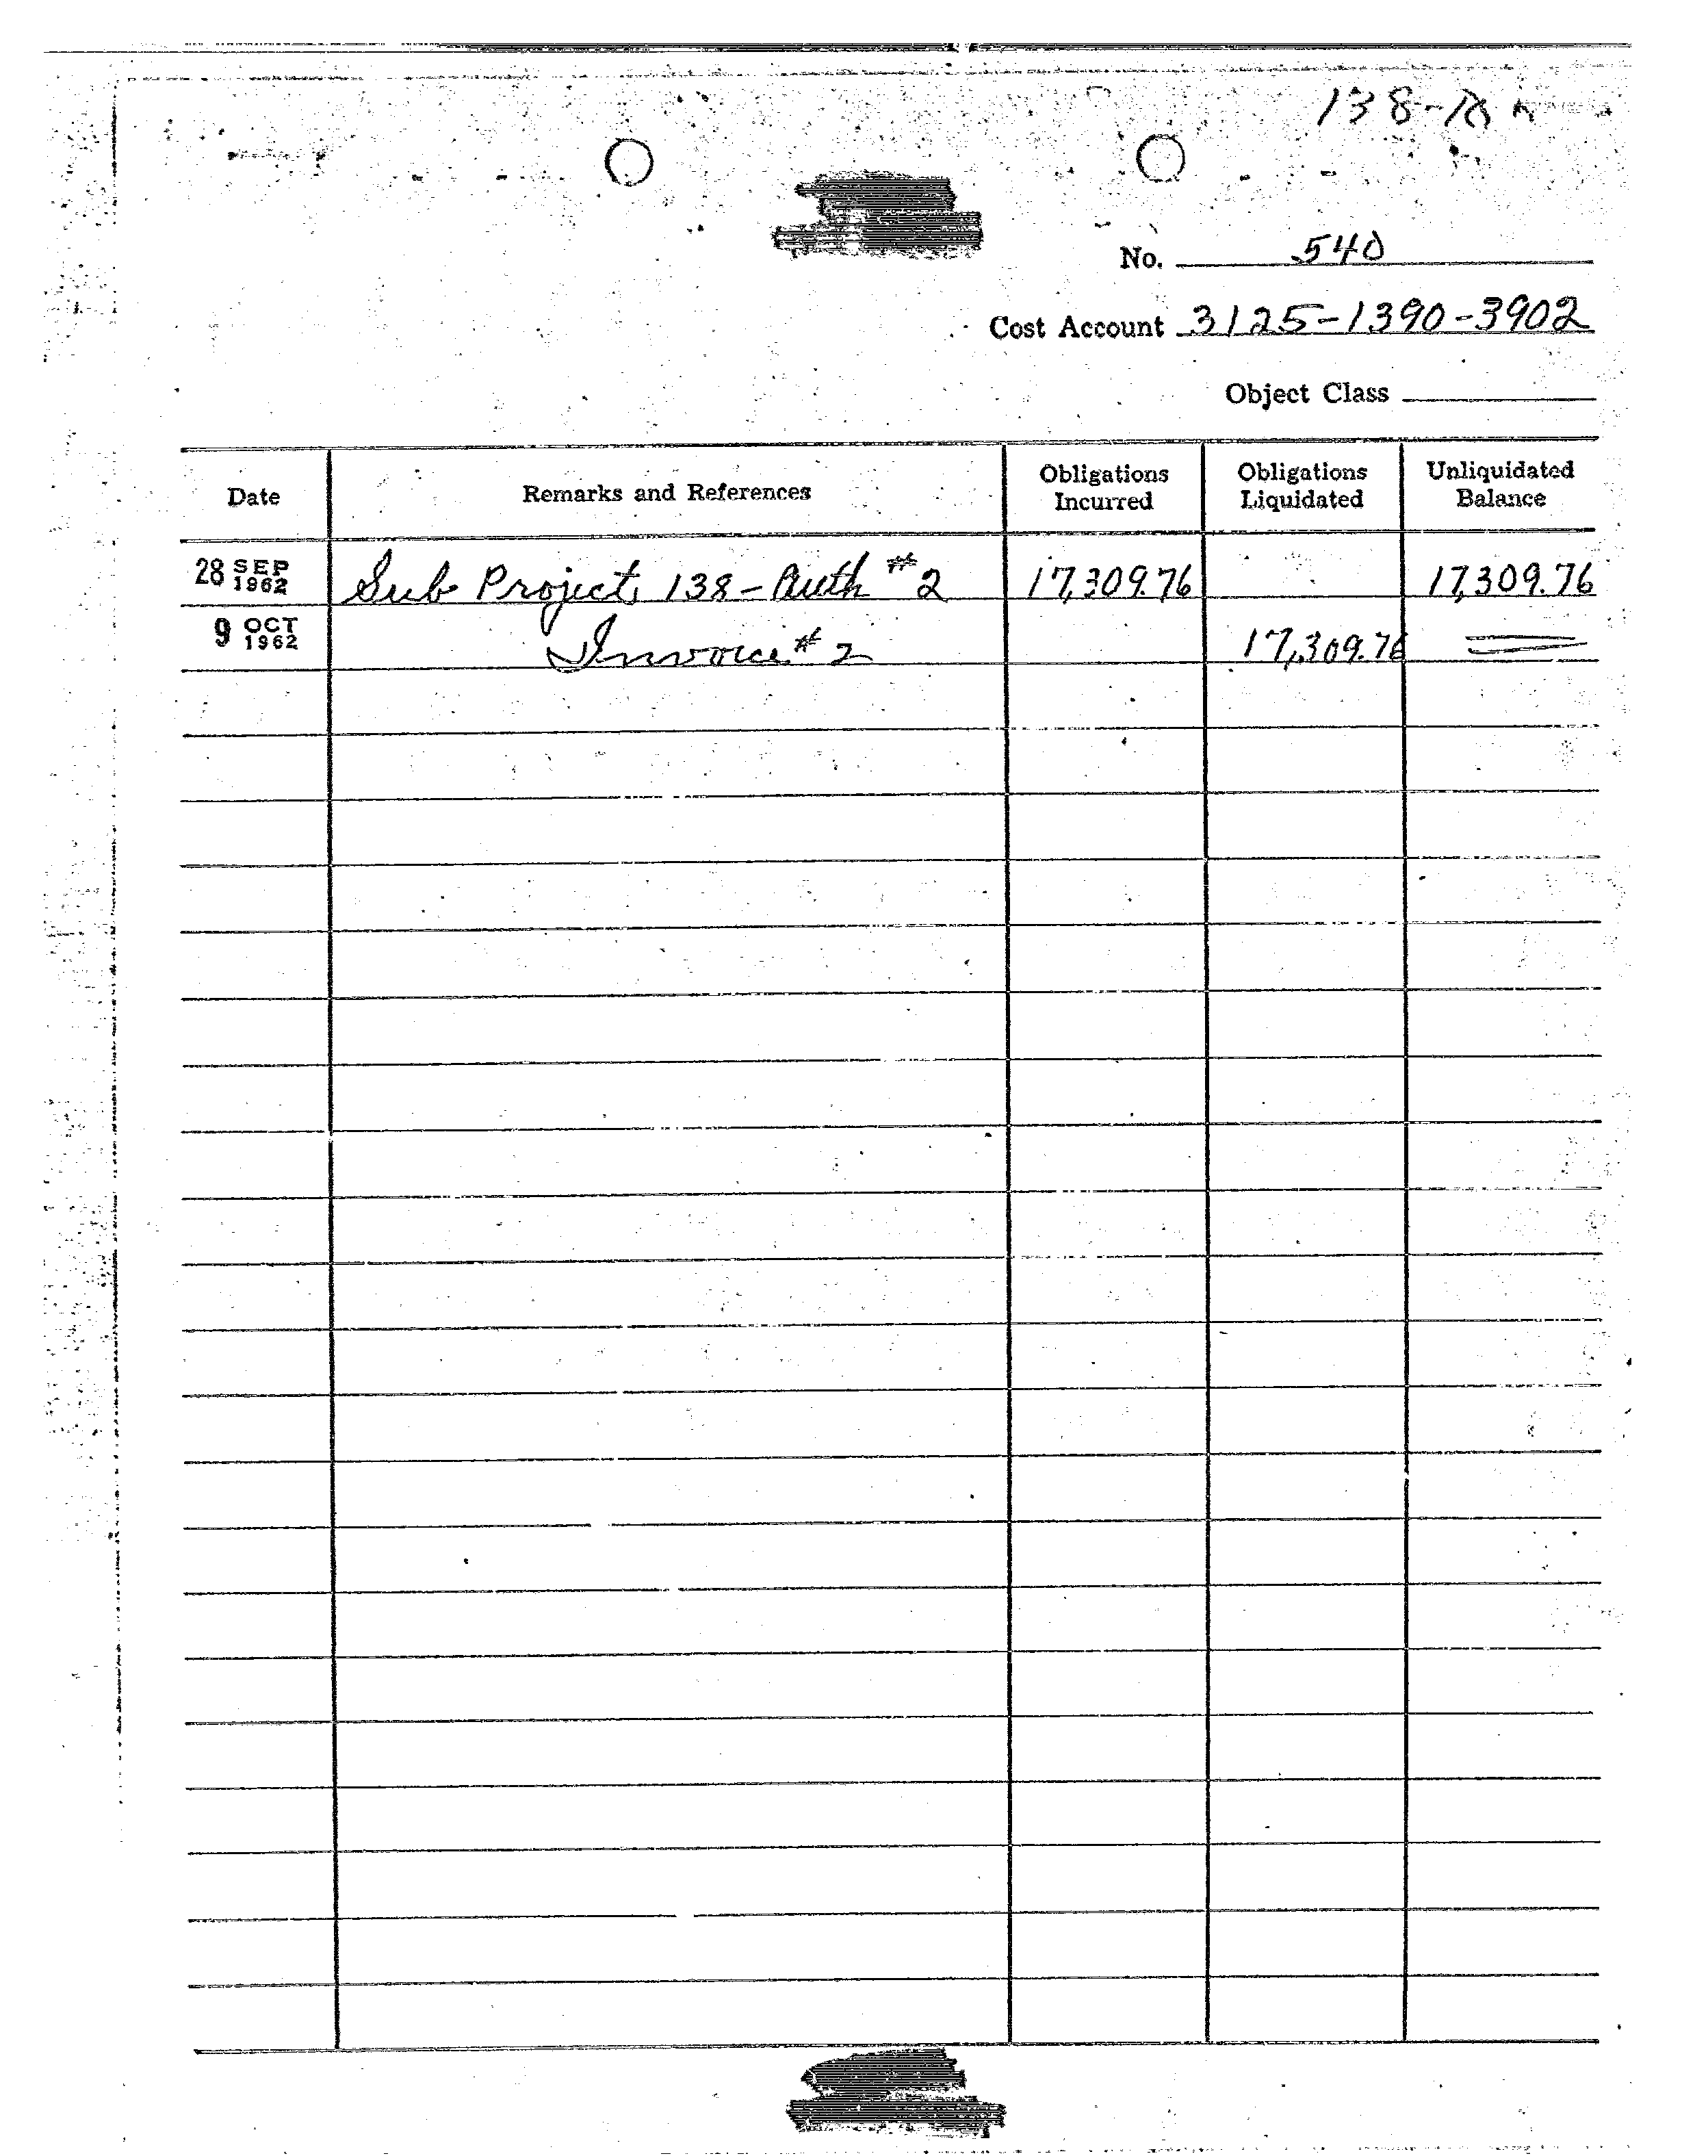 No. 540
Cost Account 3125-1390-3902
Object Class
Date Remarks and References Obligations Incurred Obligations Liquidated Unliquidated Balance
28 SEP 1962 Sub Project 138-Auth #2 17,309.76 17,309.76
9 OCT 1962 Invoice #2 17,309.76